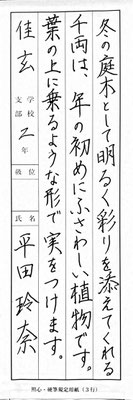 冬の庭木として明るく彩りを添えてくれる
千両は、年の初めにふさわしい植物です。
葉の上に乗るような形で実をつけます。
佳玄
学校
支部
2年
級位
氏名
平田玲奈
照心・硬筆規定用紙(3行)